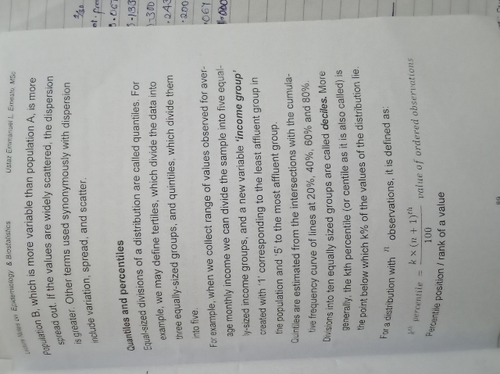 Notes on Epidemiology & Biostatistics Ustaz Emmanuel L. Ernesto, MSc
Population B, which is more variable than population A, is more
spread out. If the values are widely scattered, the dispersion
is greater. Other terms used synonymously with dispersion
include variation, spread, and scatter.
Quantiles and percentiles
Equal-sized divisions of a distribution are called quantiles. For
example, we may define tertiles, which divide the data into
three equally-sized groups, and quintiles, which divide them
into five.
For example, when we collect range of values observed for aver-
age monthly income we can divide the sample into five equal-
ly-sized income groups, and a new variable 'income group'
created with '1' corresponding to the least affluent group in
the population and '5' to the most affluent group.
Quintiles are estimated from the intersections with the cumula-
tive frequency curve of lines at 20%, 40%, 60% and 80%.
Divisions into ten equally sized groups are called deciles. More
generally, the kth percentile (or centile as it is also called) is
the point below which k% of the values of the distribution lie.
For a distribution with n observations, it is defined as:
percentile k × (n + 1)th / 100 value of ordered observations
Percentile position / rank of a value